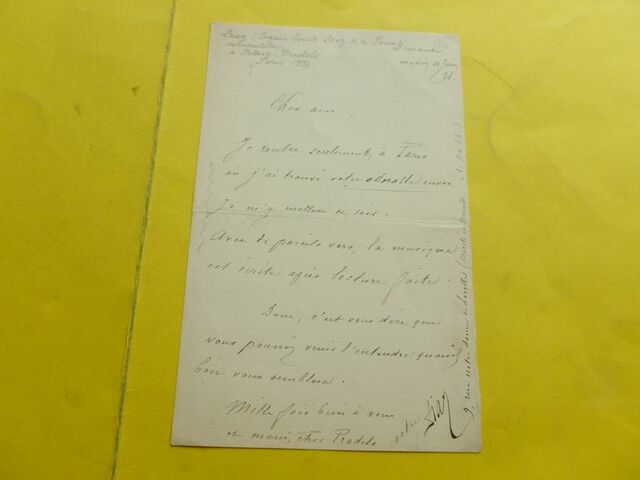 Diaz (Eugène Emile Diaz de la
à Octave Pradels
Paris 1837
Dimanche
matin, 10
Cher ami,
Je rentre seulement, à Paris
où j'ai trouvé votre adorable envoi
Je m'y mettrai ce soir.
Avec de pareils vers, la musique
est écrite après lecture faite.
Donc, c'est vous dire que
vous pourrez venir l'entendre quand
bon vous semblera.
Mille fois bien à vous
et merci, cher Pradels
votre Diaz
9 rue Notre Dame de Lorette